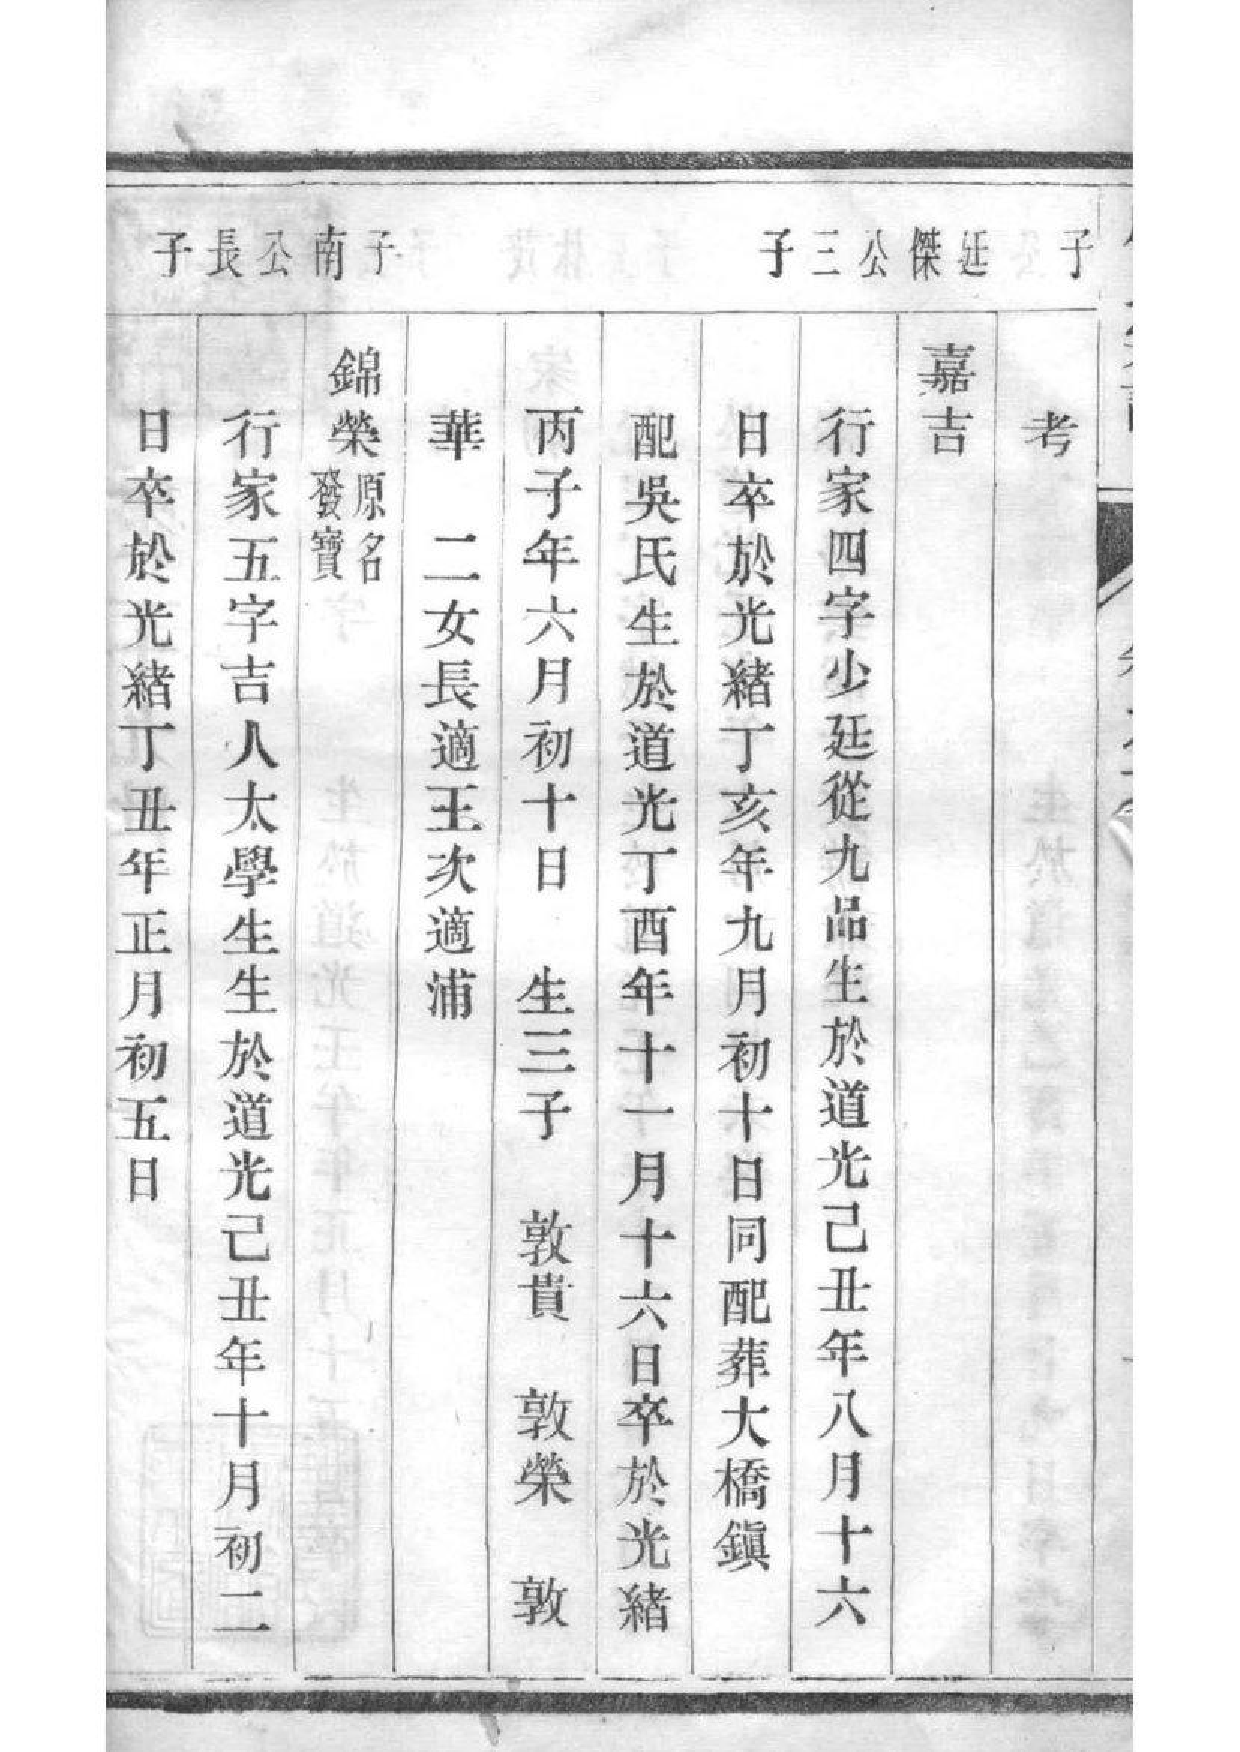 子
廷傑公三子
子南公長子
考
嘉吉
行家四字少廷從九品生於道光己丑年八月十六
日卒於光緒丁亥年九月初十日同配葬大橋鎮
配吳氏生於道光丁酉年十一月十六日卒於光緒
丙子年六月初十日 生三子 敦貴 敦榮 敦
華 二女長適王次適浦
錦榮原名發寶
行家五字吉人太學生生於道光己丑年十月初二
日卒於光緒丁丑年正月初五日